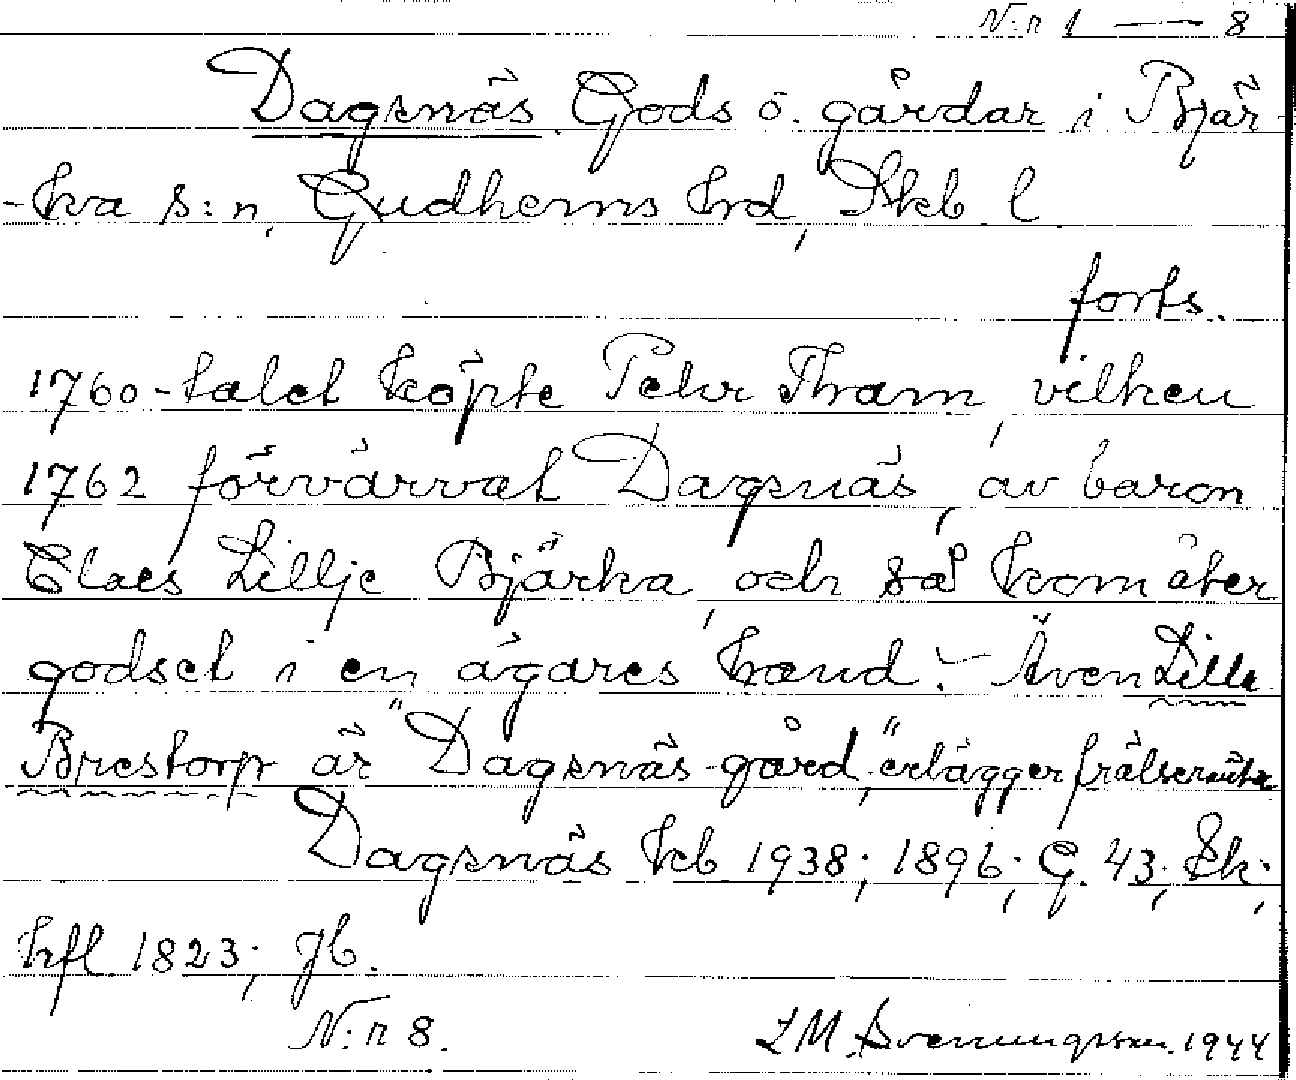 N:r 1 — 8
Dagsnäs Gods o. gårdar i Bjär-
-ka s:n, Gudhems hrd, Skb. l
forts.
1760-talet köpte Pehr Tham, vilken
1762 förvärvat Dagsnäs, av baron
Claes Lillje Bjärka, och så kom åter
godset i en ägares hand. — Även Lilla
Brestorp är "Dagsnäs-gård", erlägger frälseränta
Dagsnäs kb 1938; 1896; G. 43; Sk;
hfl. 1823; Jb.
N:r 8.
L M. Svenungsson. 1944